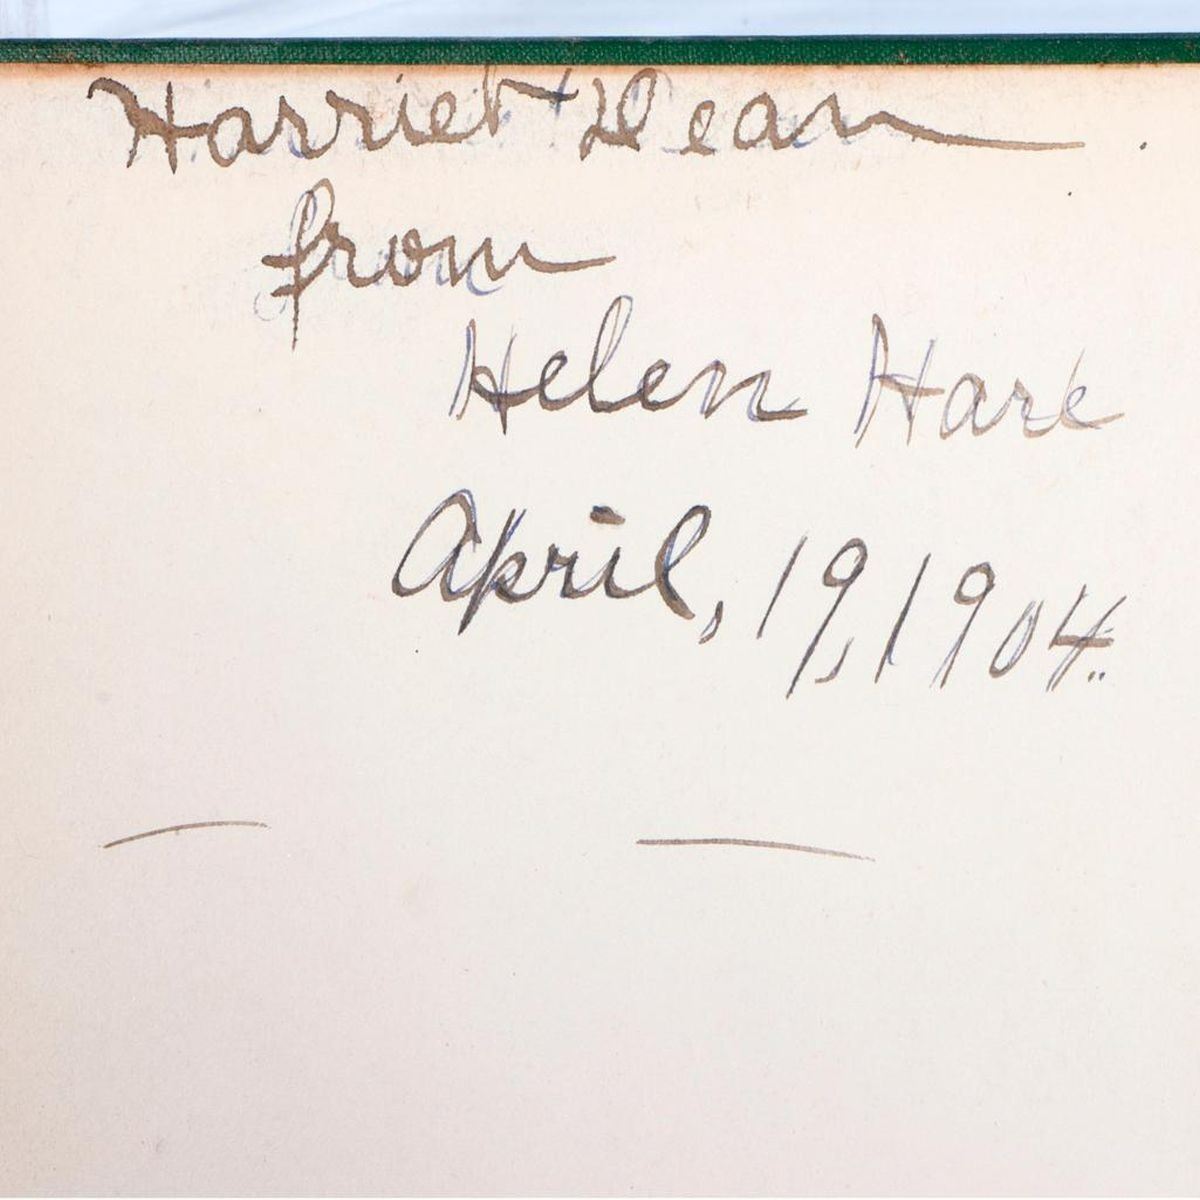 Harriet Dean
from
Helen Hare
April, 19, 1904.